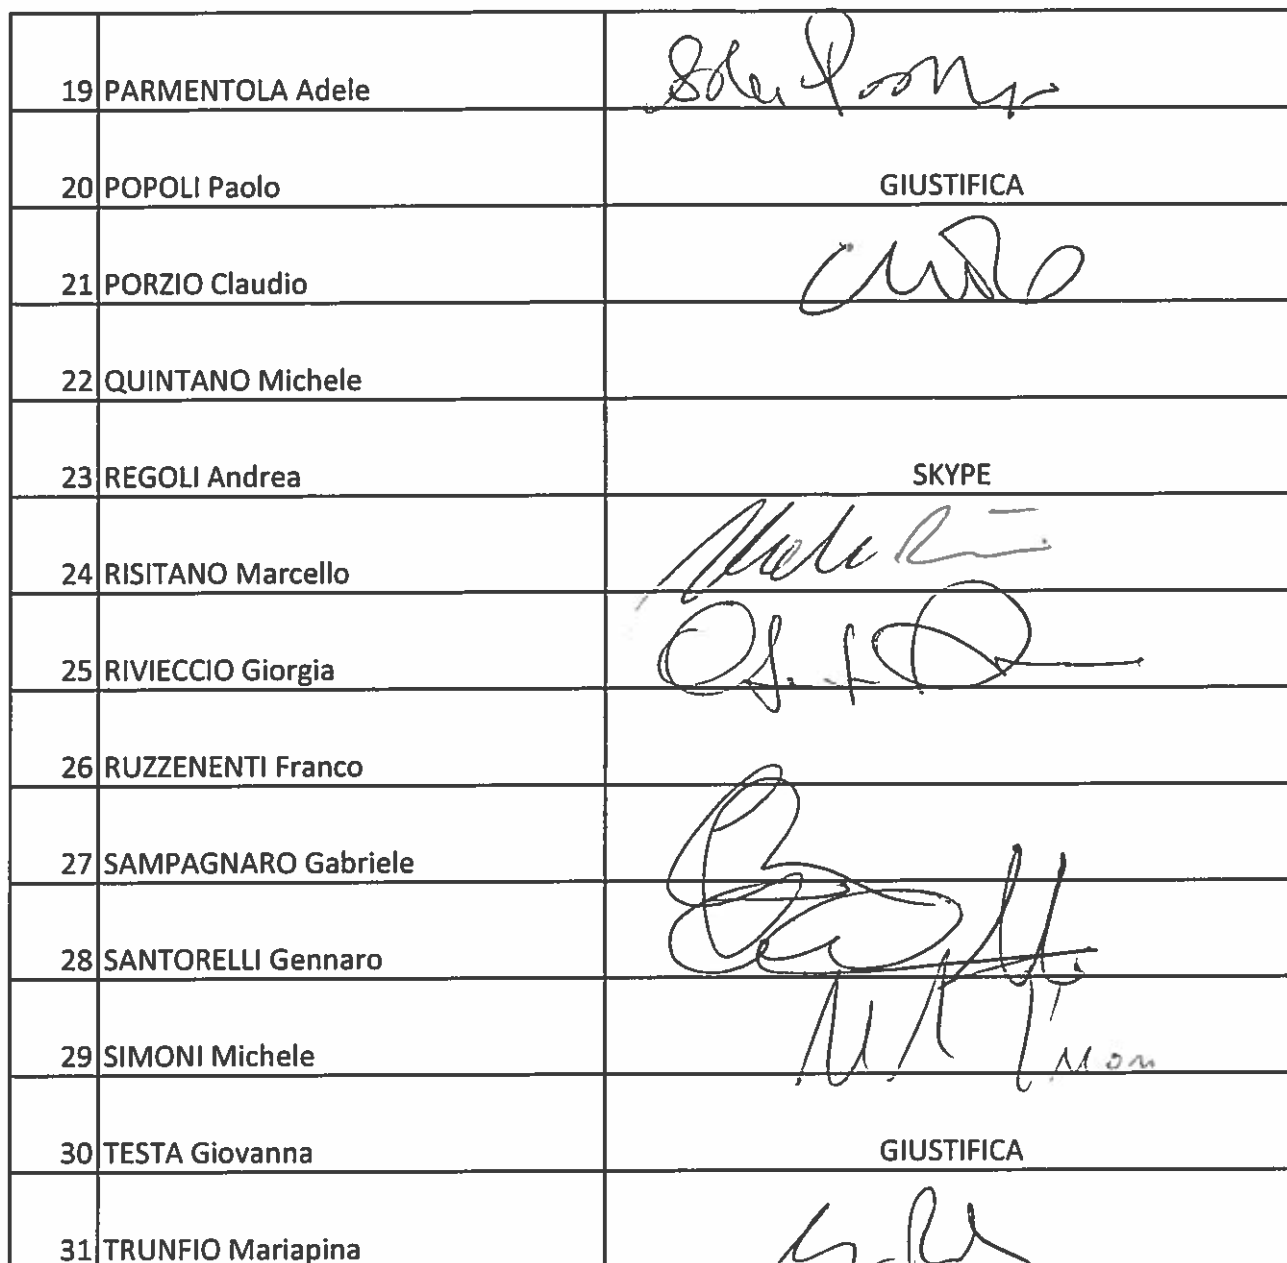 19 PARMENTOLA Adele
20 POPOLI Paolo GIUSTIFICA
21 PORZIO Claudio
22 QUINTANO Michele
23 REGOLI Andrea SKYPE
24 RISITANO Marcello
25 RIVIECCIO Giorgia
26 RUZZENENTI Franco
27 SAMPAGNARO Gabriele
28 SANTORELLI Gennaro
29 SIMONI Michele
30 TESTA Giovanna GIUSTIFICA
31 TRUNFIO Mariapina